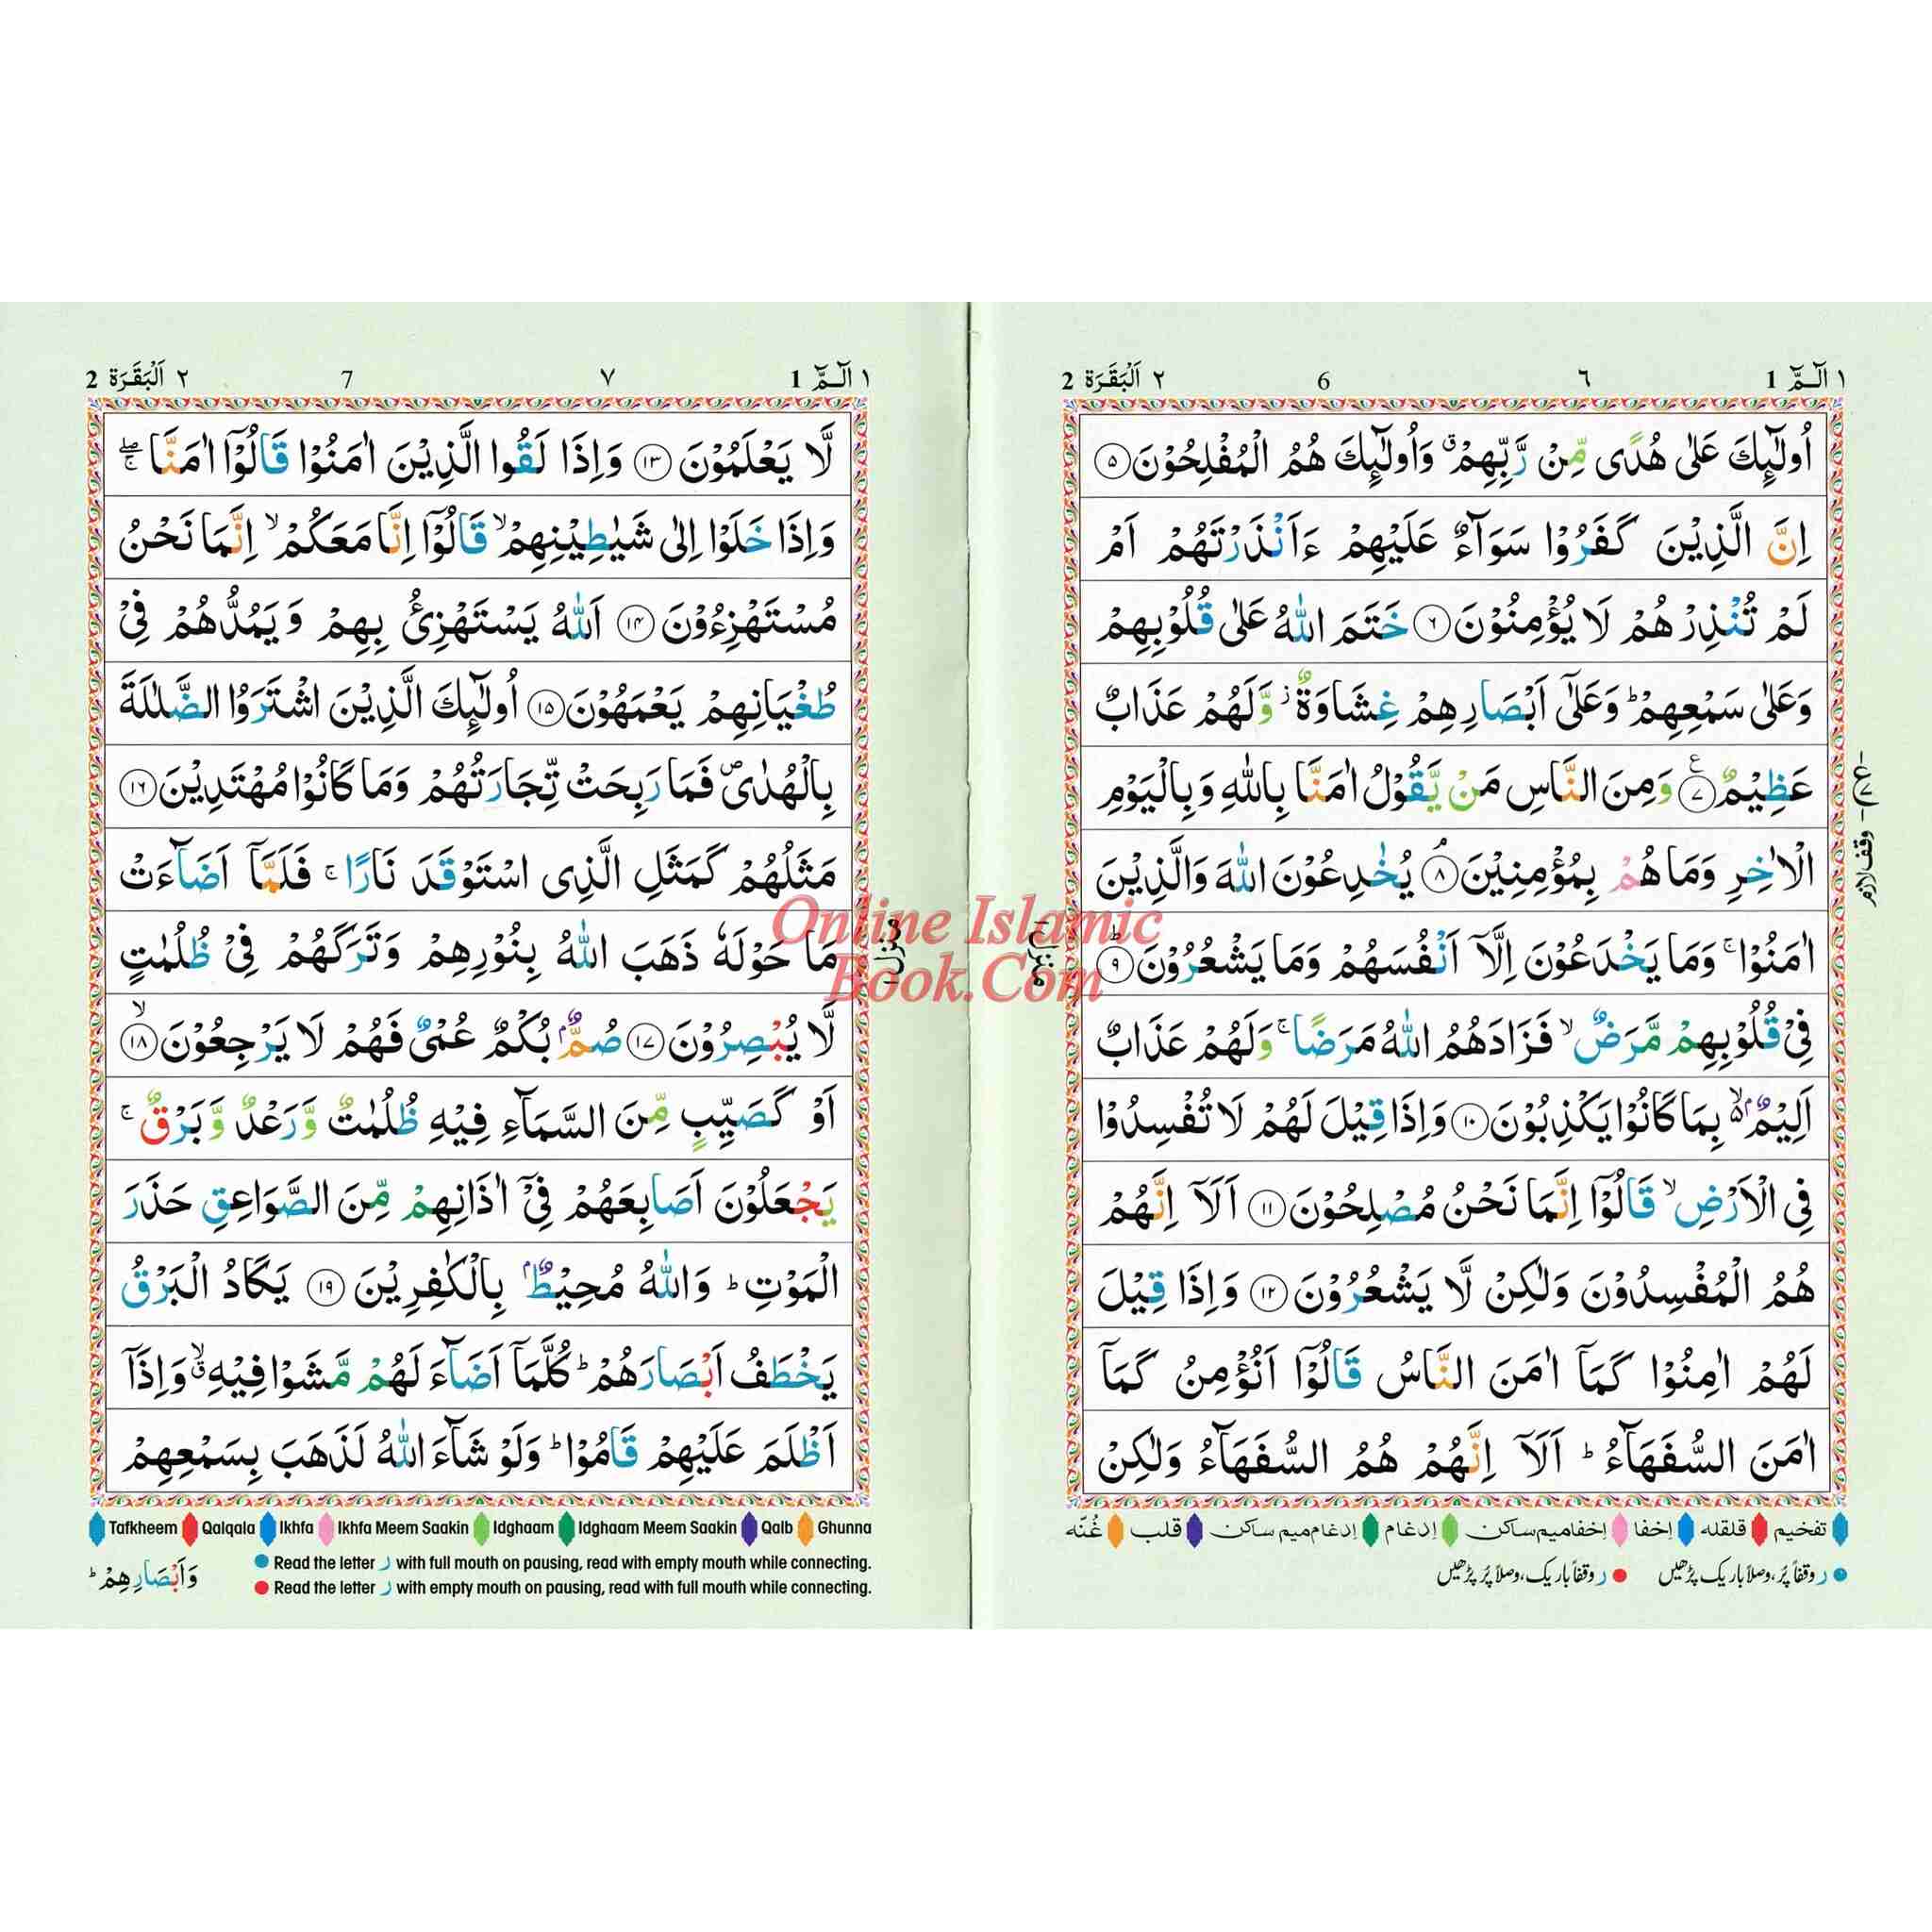 ١ الٓمّٓ 1
٦
6
٢ اَلْبَقَرَة 2
اُولٰٓئِكَ عَلٰى هُدًى مِّنْ رَّبِّهِمْ ۗ وَاُولٰٓئِكَ هُمُ الْمُفْلِحُوْنَ ۝۵
اِنَّ الَّذِيْنَ كَفَرُوْا سَوَآءٌ عَلَيْهِمْ ءَاَنْذَرْتَهُمْ اَمْ
لَمْ تُنْذِرْهُمْ لَا يُؤْمِنُوْنَ ۝۶ خَتَمَ اللّٰهُ عَلٰى قُلُوْبِهِمْ
وَعَلٰى سَمْعِهِمْ ؕ وَعَلٰٓى اَبْصَارِهِمْ غِشَاوَةٌ ز وَّلَهُمْ عَذَابٌ
عَظِيْمٌ ۝۷ وَمِنَ النَّاسِ مَنْ يَّقُوْلُ اٰمَنَّا بِاللّٰهِ وَبِالْيَوْمِ
الْاٰخِرِ وَمَا هُمْ بِمُؤْمِنِيْنَ ۝۸ يُخٰدِعُوْنَ اللّٰهَ وَالَّذِيْنَ
اٰمَنُوْا ۚ وَمَا يَخْدَعُوْنَ اِلَّآ اَنْفُسَهُمْ وَمَا يَشْعُرُوْنَ ۝۹ؕ
فِيْ قُلُوْبِهِمْ مَّرَضٌ ۙ فَزَادَهُمُ اللّٰهُ مَرَضًا ۚ وَلَهُمْ عَذَابٌ
اَلِيْمٌ ۙ۬ بِمَا كَانُوْا يَكْذِبُوْنَ ۝۱۰ وَاِذَا قِيْلَ لَهُمْ لَا تُفْسِدُوْا
فِي الْاَرْضِ ۙ قَالُوْٓا اِنَّمَا نَحْنُ مُصْلِحُوْنَ ۝۱۱ اَلَآ اِنَّهُمْ
هُمُ الْمُفْسِدُوْنَ وَلٰكِنْ لَّا يَشْعُرُوْنَ ۝۱۲ وَاِذَا قِيْلَ
لَهُمْ اٰمِنُوْا كَمَآ اٰمَنَ النَّاسُ قَالُوْٓا اَنُؤْمِنُ كَمَآ
اٰمَنَ السُّفَهَآءُ ؕ اَلَآ اِنَّهُمْ هُمُ السُّفَهَآءُ وَلٰكِنْ
وقف لازم
منزل ١
تفخیم قلقله اِخفا اِخفامیم ساکن اِدغام اِدغام میم ساکن قلب غُنّه
ر وقفاً پُر، وصلاً باریک پڑھیں ر وقفاً باریک، وصلاً پُر پڑھیں
١ الٓمّٓ 1
٧
7
٢ اَلْبَقَرَة 2
لَّا يَعْلَمُوْنَ ۝۱۳ وَاِذَا لَقُوا الَّذِيْنَ اٰمَنُوْا قَالُوْٓا اٰمَنَّا ۖۚ
وَاِذَا خَلَوْا اِلٰى شَيٰطِيْنِهِمْ ۙ قَالُوْٓا اِنَّا مَعَكُمْ ۙ اِنَّمَا نَحْنُ
مُسْتَهْزِءُوْنَ ۝۱۴ اَللّٰهُ يَسْتَهْزِئُ بِهِمْ وَيَمُدُّهُمْ فِيْ
طُغْيَانِهِمْ يَعْمَهُوْنَ ۝۱۵ اُولٰٓئِكَ الَّذِيْنَ اشْتَرَوُا الضَّلٰلَةَ
بِالْهُدٰى ۪ فَمَا رَبِحَتْ تِّجَارَتُهُمْ وَمَا كَانُوْا مُهْتَدِيْنَ ۝۱۶
مَثَلُهُمْ كَمَثَلِ الَّذِى اسْتَوْقَدَ نَارًا ۚ فَلَمَّآ اَضَآءَتْ
مَا حَوْلَهٗ ذَهَبَ اللّٰهُ بِنُوْرِهِمْ وَتَرَكَهُمْ فِيْ ظُلُمٰتٍ
لَّا يُبْصِرُوْنَ ۝۱۷ صُمٌّۢ بُكْمٌ عُمْىٌ فَهُمْ لَا يَرْجِعُوْنَ ۝۱۸ۙ
اَوْ كَصَيِّبٍ مِّنَ السَّمَآءِ فِيْهِ ظُلُمٰتٌ وَّرَعْدٌ وَّبَرْقٌ ۚ
يَجْعَلُوْنَ اَصَابِعَهُمْ فِيْٓ اٰذَانِهِمْ مِّنَ الصَّوَاعِقِ حَذَرَ
الْمَوْتِ ؕ وَاللّٰهُ مُحِيْطٌۢ بِالْكٰفِرِيْنَ ۝۱۹ يَكَادُ الْبَرْقُ
يَخْطَفُ اَبْصَارَهُمْ ؕ كُلَّمَآ اَضَآءَ لَهُمْ مَّشَوْا فِيْهِ ۙۗ وَاِذَآ
اَظْلَمَ عَلَيْهِمْ قَامُوْا ؕ وَلَوْ شَآءَ اللّٰهُ لَذَهَبَ بِسَمْعِهِمْ
منزل ١
Tafkheem Qalqala Ikhfa Ikhfa Meem Saakin Idghaam Idghaam Meem Saakin Qalb Ghunna
Read the letter ر with full mouth on pausing, read with empty mouth while connecting.
Read the letter ر with empty mouth on pausing, read with full mouth while connecting.
وَاَبْصَارِهِمْ ؕ
Online Islamic
Book.Com